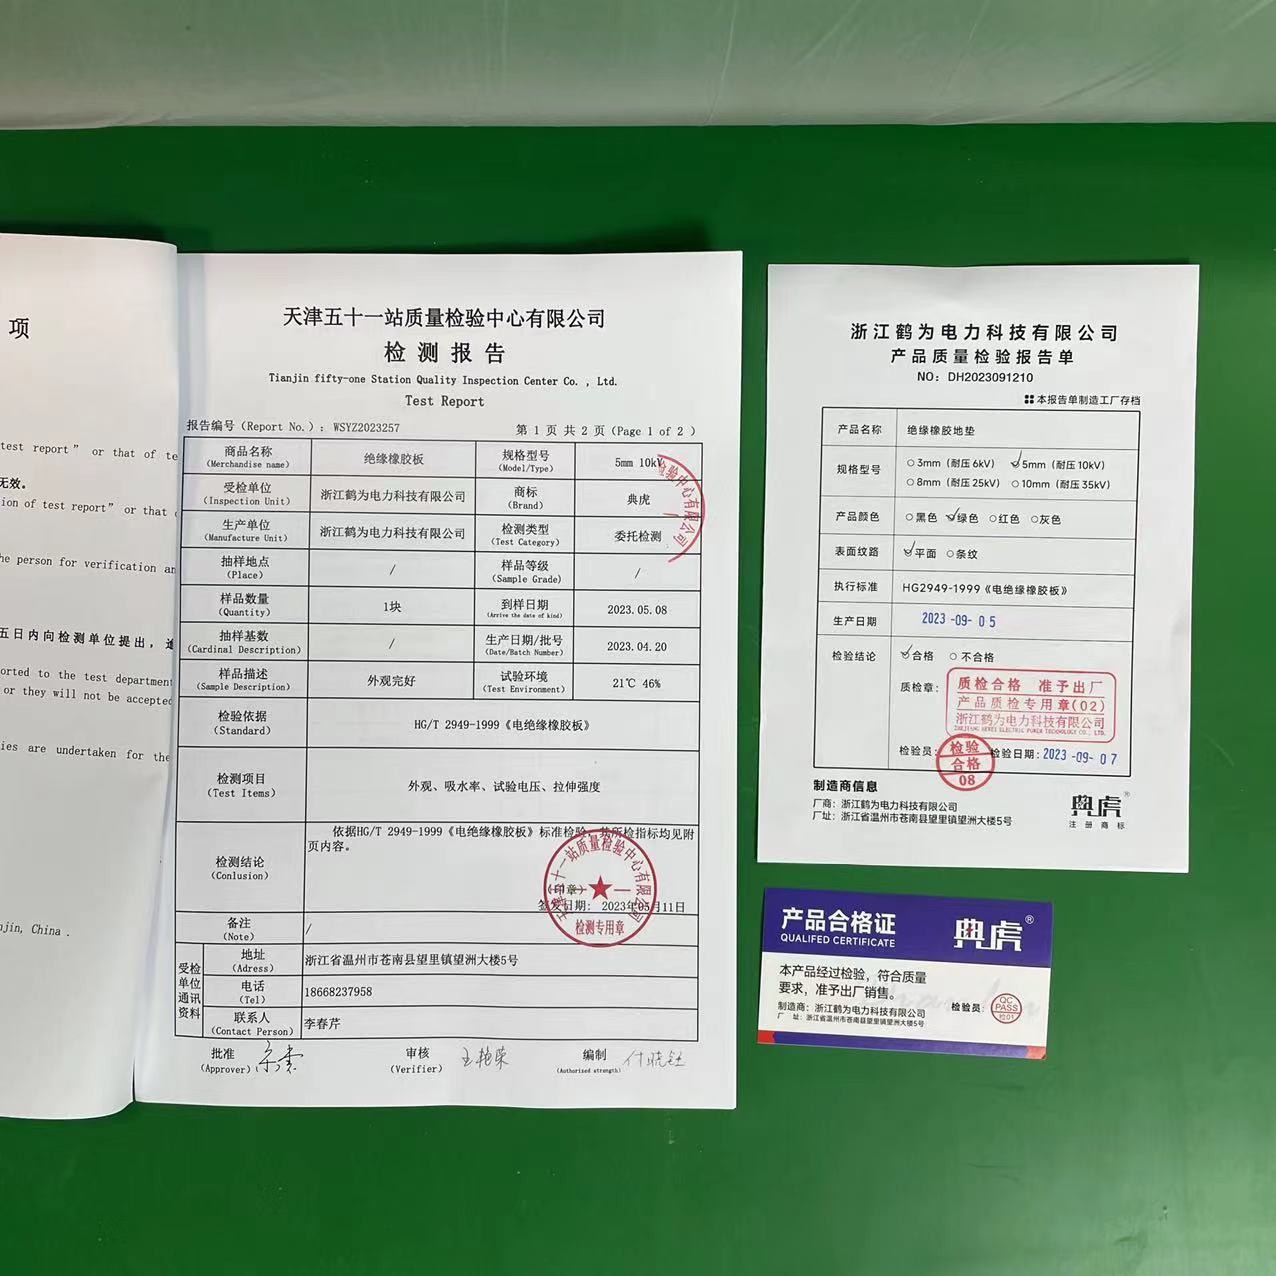 项
test report” or that of te
无效。
ion of test report” or that
he person for verification an
五日内向检测单位提出，
orted to the test department
or they will not be accepted
ies are undertaken for the
njin, China .
天津五十一站质量检验中心有限公司
检测报告
Tianjin fifty-one Station Quality Inspection Center Co. , Ltd.
Test Report
报告编号（Report No.）: WSYZ2023257
第 1 页 共 2 页（Page 1 of 2 ）
商品名称 绝缘橡胶板 规格型号 5mm 10kV
(Merchandise name) (Model/Type)
受检单位 浙江鹤为电力科技有限公司 商标 典虎
(Inspection Unit) (Brand)
生产单位 浙江鹤为电力科技有限公司 检测类型 委托检测
(Manufacture Unit) (Test Category)
抽样地点 / 样品等级 /
(Place) (Sample Grade)
样品数量 1块 到样日期 2023.05.08
(Quantity) (Arrive the date of kind)
抽样基数 / 生产日期/批号 2023.04.20
(Cardinal Description) (Date/Batch Number)
样品描述 外观完好 试验环境 21℃ 46%
(Sample Description) (Test Environment)
检验依据 HG/T 2949-1999《电绝缘橡胶板》
(Standard)
检测项目 外观、吸水率、试验电压、拉伸强度
(Test Items)
检测结论 依据HG/T 2949-1999《电绝缘橡胶板》标准检验，其所检指标均见附
(Conlusion) 页内容。
（印章）
签发日期: 2023年05月11日
检测专用章
备注 /
(Note)
受检单位通讯资料
地址 浙江省温州市苍南县望里镇望洲大楼5号
(Adress)
电话 18668237958
(Tel)
联系人 李春芹
(Contact Person)
批准 审核 王艳荣 编制
(Approver) (Verifier) (Authorized strength)
浙江鹤为电力科技有限公司
产品质量检验报告单
NO: DH2023091210
本报告单制造工厂存档
产品名称 绝缘橡胶地垫
规格型号 ○3mm（耐压 6kV） ✓5mm（耐压 10kV）
○8mm（耐压 25kV） ○10mm（耐压 35kV）
产品颜色 ○黑色 ✓绿色 ○红色 ○灰色
表面纹路 ✓平面 ○条纹
执行标准 HG2949-1999《电绝缘橡胶板》
生产日期 2023 -09- 0 5
检验结论 ✓合格 ○不合格
质检章：
质检合格 准予出厂
产品质检专用章(02)
浙江鹤为电力科技有限公司
ZHEJIANG HEWEI ELECTRIC POWER TECHNOLOGY CO., LTD.
检验员： 检验合格08 检验日期：2023 -09- 0 7
制造商信息
厂商：浙江鹤为电力科技有限公司
厂址：浙江省温州市苍南县望里镇望洲大楼5号
典虎®
注册商标
产品合格证
QUALIFED CERTIFICATE
典虎®
本产品经过检验，符合质量
要求，准予出厂销售。
制造商：浙江鹤为电力科技有限公司
厂 址：浙江省温州市苍南县望里镇望洲大楼5号
检验员:
QC
PASS
检01